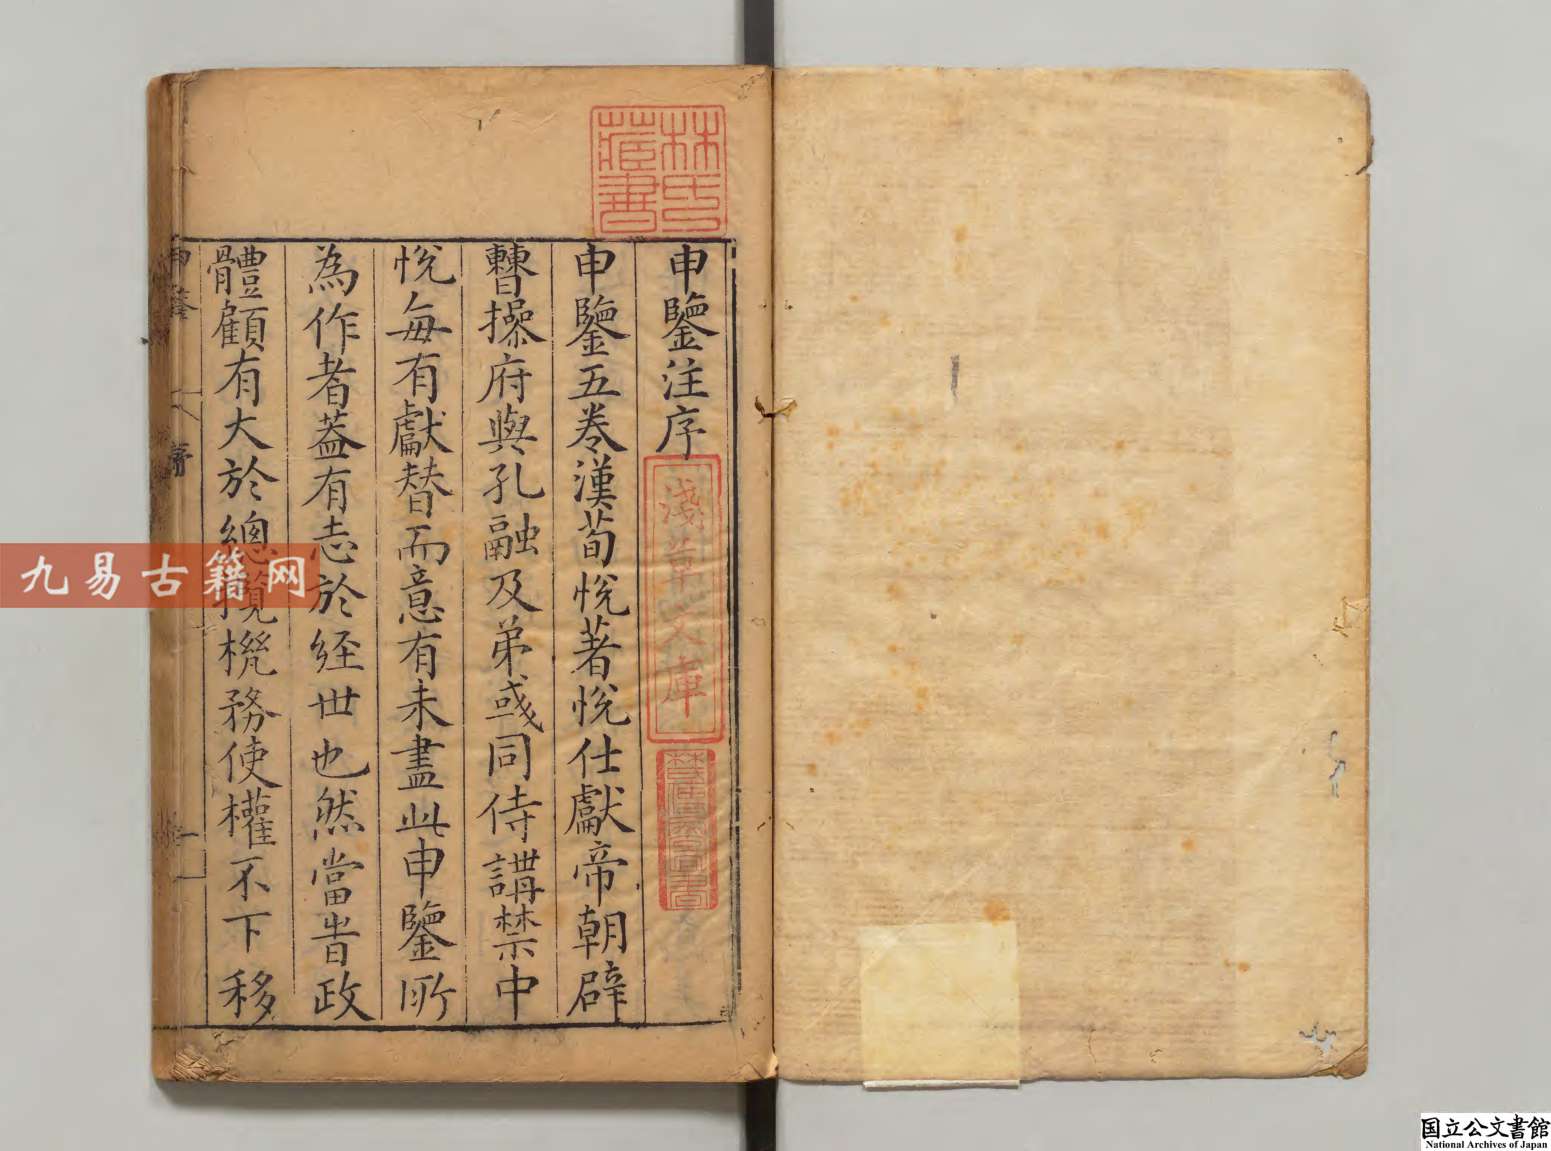 申鑒注序
申鑒五卷漢荀悅著悅仕獻帝朝辟
曹操府與孔融及弟彧同侍講禁中
悅每有獻替而意有未盡此申鑒所
為作者蓋有志於經世也然當旹政
體顧有大於總攬機務使權不下移
序
林氏藏書
淺草文庫
九易古籍网
国立公文書館
National Archives of Japan